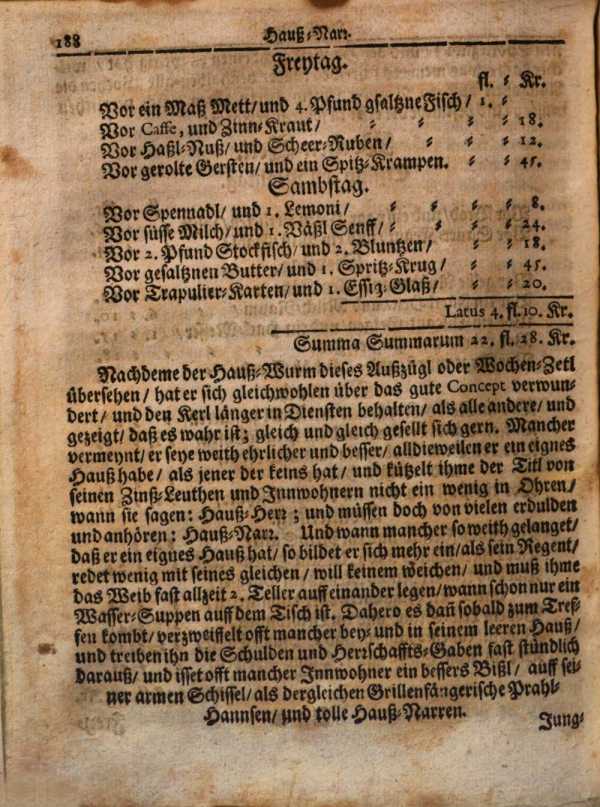 188
Hauß-Narr.
Freytag.
fl. - Kr.
Vor ein Maß Mett/ und 4. Pfund gsaltzne Fisch/ 1. -
Vor Caffe, und Zinn-Kraut/ - - - 18.
Vor Haßl-Nuß/ und Scheer-Ruben/ - - 12.
Vor gerolte Gersten/ und ein Spitz-Krampen. - - 45.
Sambstag.
Vor Spennadl/ und 1. Lemoni/ - - - - 8.
Vor süsse Milch/ und 1. Väßl Senff/ - - - 24.
Vor 2. Pfund Stockfisch/ und 2. Bluntzen/ - - 18.
Vor gesaltznen Butter/ und 1. Spritz-Krug/ - - 45.
Vor Trapulier-Karten/ und 1. Essig-Glaß/ - - 20.
Latus 4. fl. 10. Kr.
Summa Summarum 22. fl. 28. Kr.
Nachdeme der Hauß-Wurm dieses Außzügl oder Wochen-Zetl
übersehen/ hat er sich gleichwohlen über das gute Concept verwun-
dert/ und den Kerl länger in Diensten behalten/ als alle andere/ und
gezeigt/ daß es wahr ist; gleich und gleich gesellt sich gern. Mancher
vermeynt/ er seye weith ehrlicher und besser/ alldieweilen er ein eignes
Hauß habe/ als jener der keins hat/ und kützelt ihme der Titl von
seinen Zinß-Leuthen und Innwohnern nicht ein wenig in Ohren/
wann sie sagen: Hauß-Herr; und müssen doch von vielen erdulden
und anhören: Hauß-Narr. Und wann mancher so weith gelanget/
daß er ein eignes Hauß hat/ so bildet er sich mehr ein/ als sein Regent/
redet wenig mit seines gleichen/ will keinem weichen/ und muß ihme
das Weib fast allzeit 2. Teller auff einander legen/ wann schon nur ein
Wasser-Suppen auff dem Tisch ist. Dahero es dañ sobald zum Tref-
fen kombt/ verzweiffelt offt mancher bey- und in seinem leeren Hauß/
und treiben ihn die Schulden und Herrschaffts-Gaben fast stündlich
darauß/ und isset offt mancher Innwohner ein bessers Bißl/ auff sei-
ner armen Schissel/ als dergleichen Grillenfängerische Prahl-
Hannsen/ und tolle Hauß-Narren.
Jung-